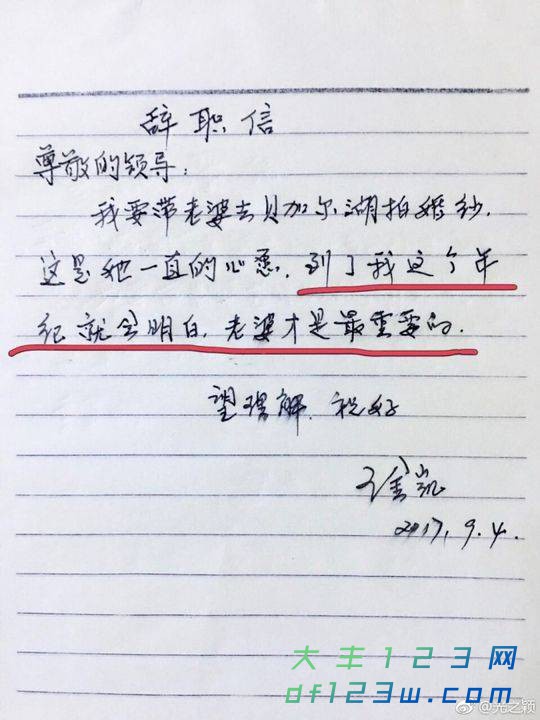 辞职信
尊敬的领导:
我要带老婆去贝加尔湖拍婚纱.
这是她一直的心愿.到了我这个年
纪就会明白,老婆才是最重要的.
望理解.祝好
2017.9.4.
大丰123网
df123w.com
@光之颖